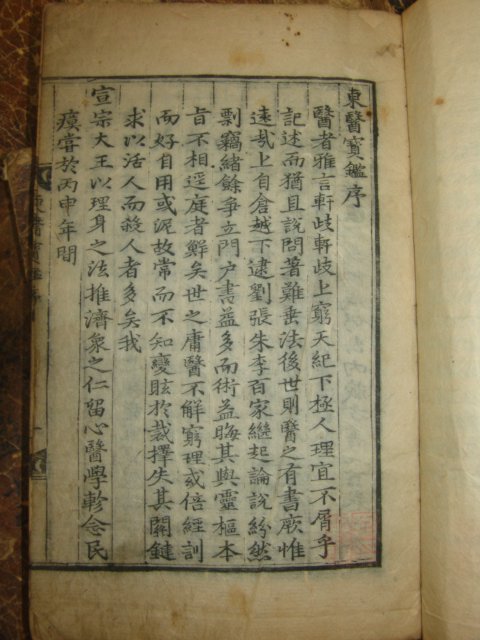 東醫寶鑑序
醫者雅言軒歧軒歧上窮天紀下極人理宜不屑乎
記述而猶且說問著難垂法後世則醫之有書厥惟
遠哉上自倉越下逮劉張朱李百家繼起論說紛然
剽竊緖餘爭立門戶書益多而術益晦其與靈樞本
旨不相逕庭者鮮矣世之庸醫不解窮理或倍經訓
而好自用或泥故常而不知變眩於裁擇失其關鍵
求以活人而殺人者多矣我
宣宗大王以理身之法推濟衆之仁留心醫學軫念民
瘼嘗於丙申年間